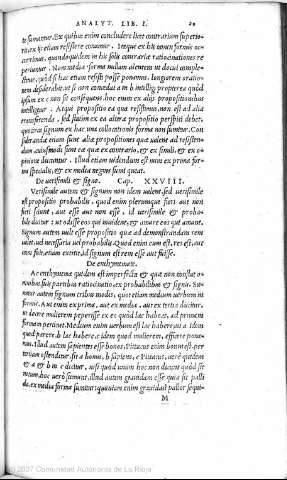 ANALYT. LIB. I.
te sumantur. Ex quibus enim concludere licet contrarium superio
ribus, & etiam resistere convenit. Itaque ex his nonnisi formis oc
currimus, quandoquidem in his solis contrariae ratiocinationes re
periuntur. Non media forma nullum alienum
tur, quòd si hac etiam resisti posse ponamus, longiorem oratio-
nem desiderabit, ut si non concedat a in b intelligi, propterea quòd
ipsum ex c non se consequens: hoc enim ex aliis propositionibus
intelligetur. Atqui propositio ea qua resistimus, non est ad alia
transferenda, sed statim ex ea altera propositio perspici debet,
quocirca signum ex hac una collectionis forma non sumitur. Con
siderandae etiam sunt aliae propositiones quae valent ad resisten-
dum, cuiusmodi sunt ea quae ex contrario, & ex simili, & ex o-
pinione ducuntur. Illud etiam videndum est num ex prima for-
ma specialis, & ex media negans sumi queat.
De verisimili & signo. Cap. XXVIII.
Verisimile autem & signum non idem valent, sed verisimile
est propositio probabilis, quod enim plerumque fieri aut non
fieri sciunt, aut esse aut non esse, id verisimile & proba-
bile dicitur: ut odisse eos qui invident, & amare eos qui amant.
Signum autem vult esse propositio quae ad demonstrandum tem
valet, vel necessaria vel probabilis. Quod enim cum est, res est, aut
cum fuit, etiam extitit, id signum est rem esse aut fuisse.
De enthymemate.
Ac enthymema quidem est imperfecta & quae non constat o-
mnibus suis partibus ratiocinatio, ex probabilibus & signis. Su-
mitur autem signum tribus modis, quot etiam medium verbum in
formis. Aut enim ex prima, aut ex media, aut ex tertia dicitur,
ut docere mulierem peperisse ex eo quòd lac habeat, ad primam
formam pertinet. Medium enim verbum est lac habere, a idem
quod parere, b lac habere, c idem quod mulierem, efficere pona-
tur. Illud autem sapientes esse bonos, Pittacus enim bonus est, per
tertiam ostenditur. sit a bonus, b sapiens, c Pittacus, verè quidem
& a & b in c dicitur, nisi quòd unum hoc non dicunt quòd sit
notum, hoc verò sumunt. illud autem grandam esse quia sit palli
da, ex media forma sumitur: quoniam enim gravidas pallor sequi-
M
© 2007 Comunidad Autónoma de La Rioja